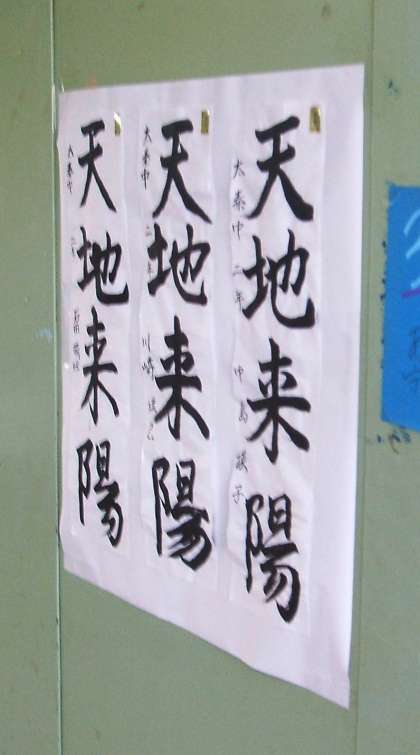 天地来陽
大泰中 二年 中島 子
天地来陽
大泰中 二年 川崎
天地来陽
大泰中 二年